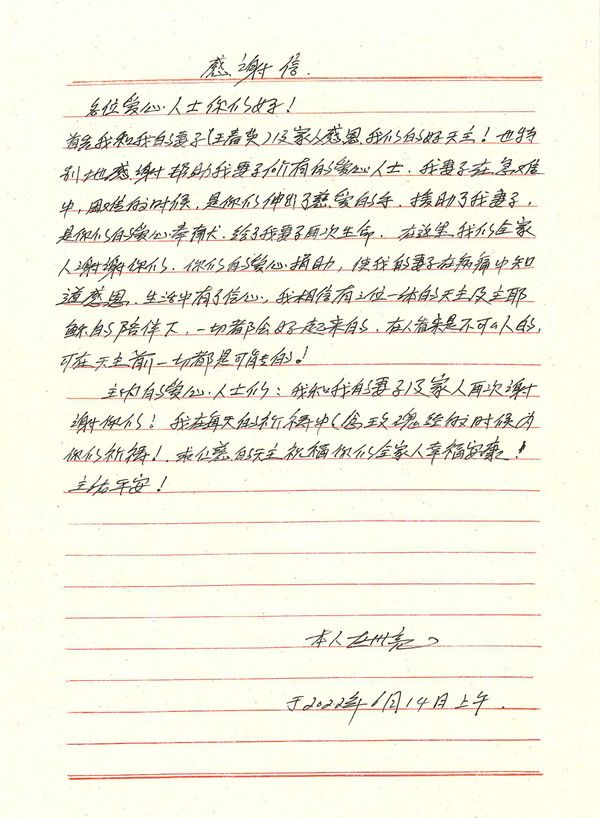 感谢信.
各位爱心人士你们好！
首先我和我的妻子(王春英)及家人感恩我们的好天主！也特
别地感谢帮助我妻子所有的爱心人士. 我妻子在急难
中，困难的时候，是你们伸出了慈爱的手. 援助了我妻子，
是你们的爱心奉献. 给了我妻子再次生命. 在这里我们全家
人谢谢你们. 你们的爱心捐助，使我的妻子在病痛中知
道感恩. 生活中有了信心，我相信有三位一体的天主及主耶
稣的陪伴下，一切都会好起来的. 在人看来是不可以的，
可在天主前一切都是可能的！
主内的爱心人士们：我和我的妻子及家人再次谢
谢你们！我在每天的祈祷中(念玫瑰经的时候为
你们祈祷！求仁慈的天主祝福你们全家人幸福安康！
主佑平安！
本人
于2022年6月14日上午.